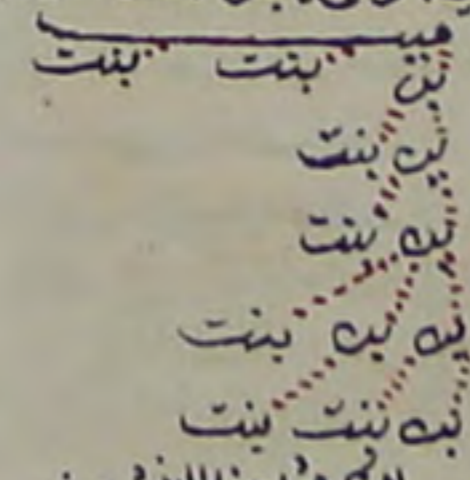 ميت
بن بنت بنت
بن بنت
بن بنت
بن بن بنت
بن بنت بنت